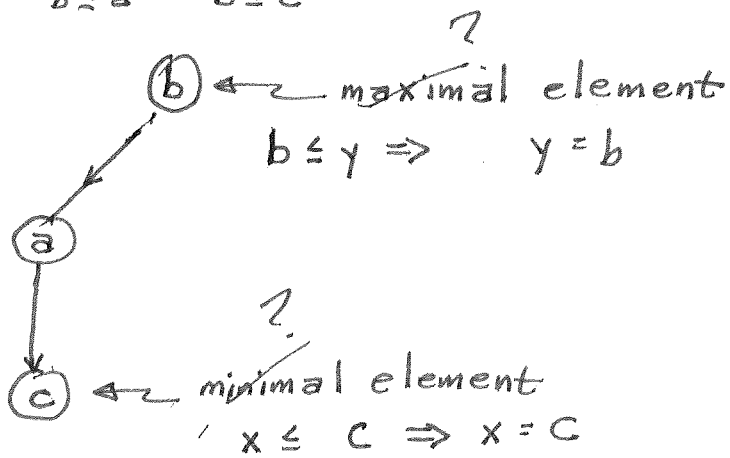 ?
b ← maximal element
b ≤ y ⇒ y = b
a
?
c ← minimal element
x ≤ c ⇒ x = c